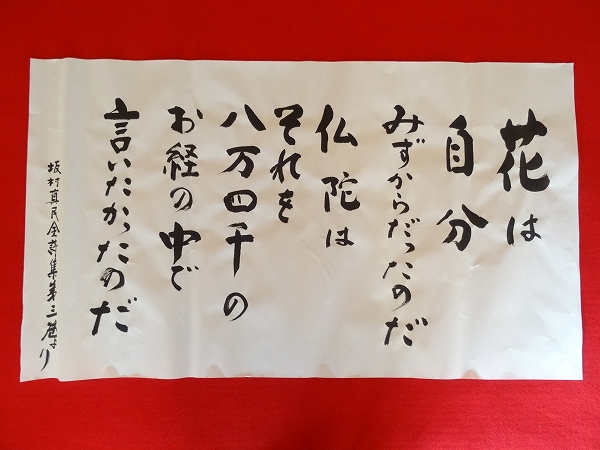 花は
自分
みずからだったのだ
仏陀は
それを
八万四千の
お経の中で
言いたかったのだ
坂村真民全詩集第三巻より